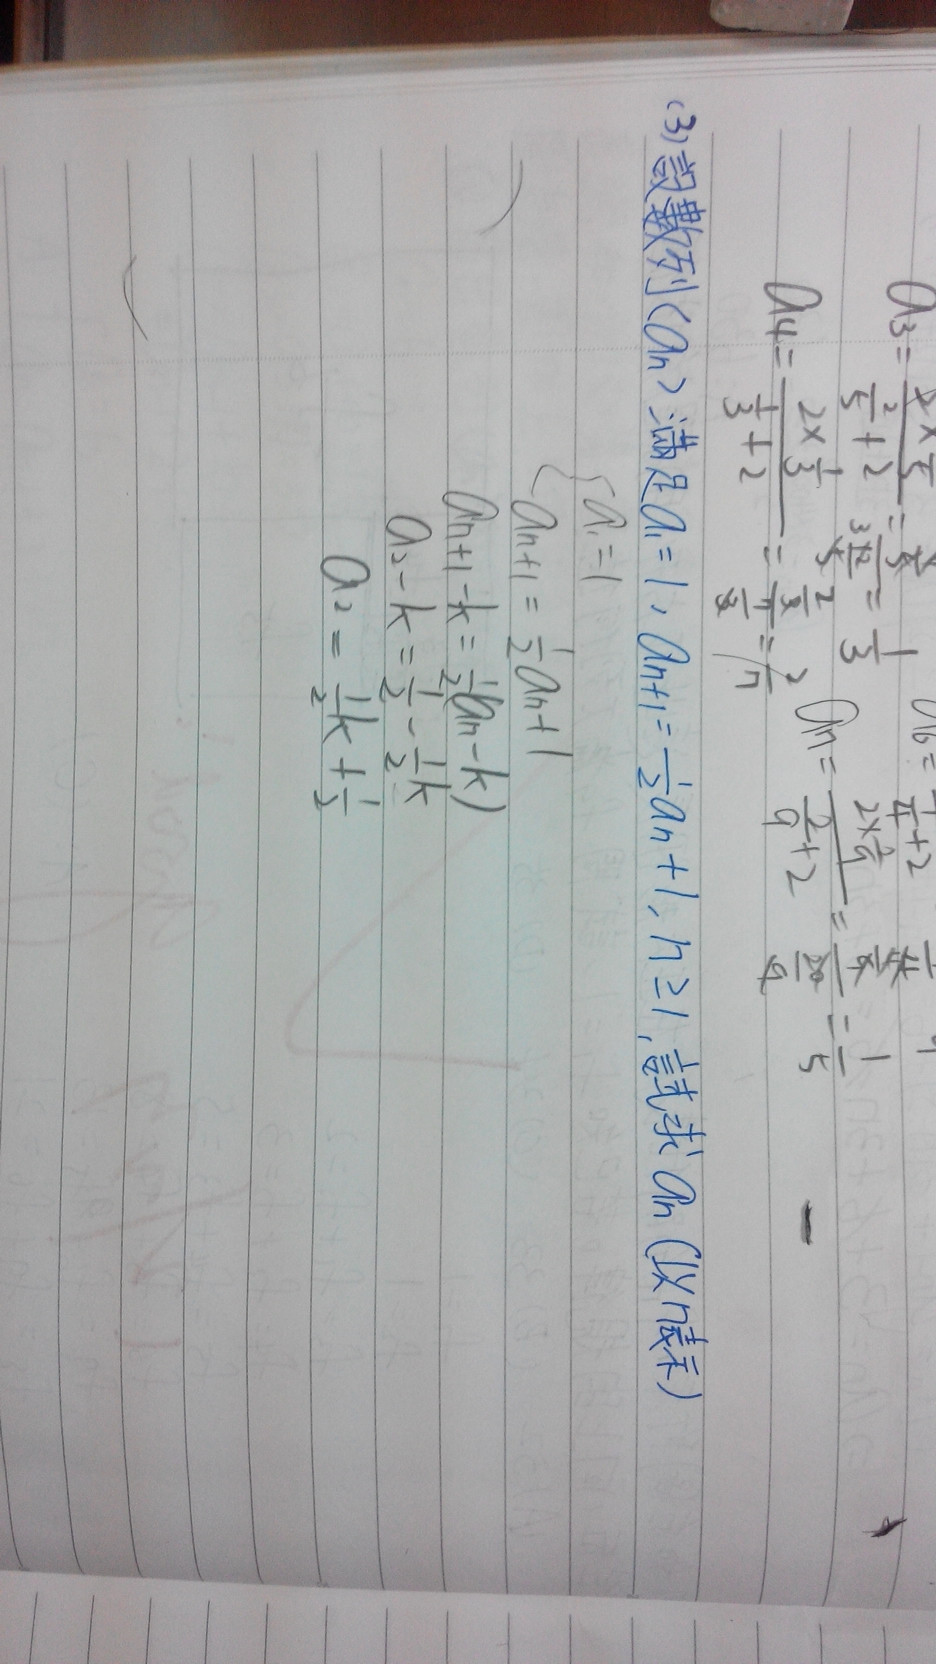 a3 =
a6 =
a4 = (2×1/3)/(1/3+2) = (2/3)/(7/3) = 2/7
an = (2×2/9)/(2/9+2) = = 1/5
(3) 設數列<an>滿足a1=1, an+1=1/2an+1, n≥1, 試求an (以n表示)
{a1=1
an+1=1/2an+1
an+1-k=1/2(an-k)
a2-k=1/2-1/2k
a2=1/2k+1/2